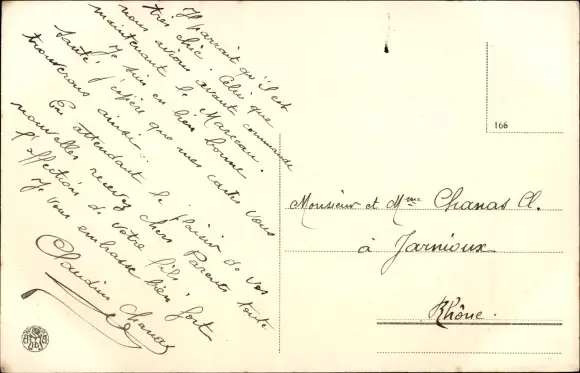 Il parrait qu'il est
très chic. Celui que
nous avions avant commande
maintenant le Marceau.
Je suis en bien bonne
santé j'espère que mes cartes vous
trouverons ainsi.
En attendant le plaisir de vos
nouvelles recevez chers Parents toute
l'affection de votre fils,
Je vous embrasse bien fort
Claudius Chanas
166
Monsieur et Mme Chanas Cl.
à Jarnioux
Rhône.